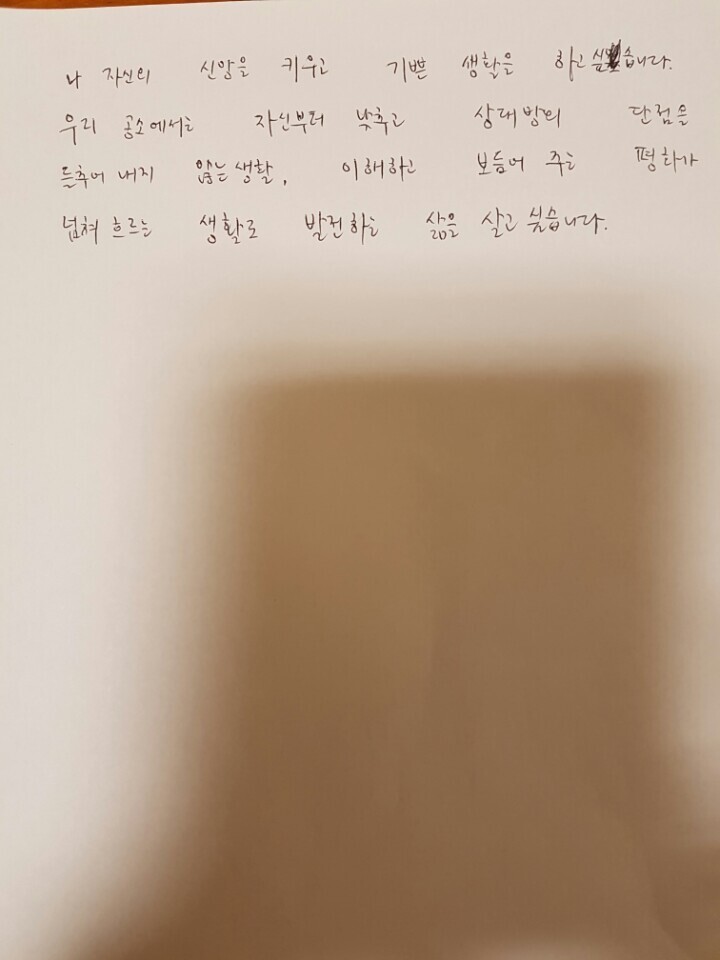 나 자신의 신앙을 키우고 기쁜 생활을 하고 싶습니다.
우리 공소에서는 자신부터 낮추고 상대방의 단점을
들추어 내지 않는 생활, 이해하고 보듬어 주는 평화가
넘쳐 흐르는 생활로 발전하는 삶을 살고 싶습니다.